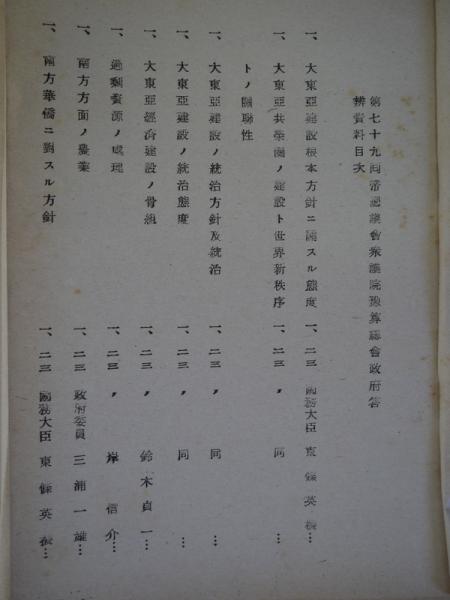 第七十九回帝國議會衆議院豫算總會政府答
辨資料目次
一、大東亞建設根本方針ニ關スル態度 一、二三 國務大臣 東條英機…
一、大東亞共榮圏ノ建設ト世界新秩序 一、二三 〃 同 …
トノ關聯性
一、大東亞建設ノ統治方針及統治 一、二三 〃 同 …
一、大東亞建設ノ統治態度 一、二三 〃 同 …
一、大東亞經濟建設ノ骨組 一、二三 〃 鈴木貞一…
一、過剩資源ノ處理 一、二三 〃 岸信介…
一、南方方面ノ農業 一、二三 政府委員 三浦一雄…
一、南方華僑ニ對スル方針 一、二三 國務大臣 東條英機…